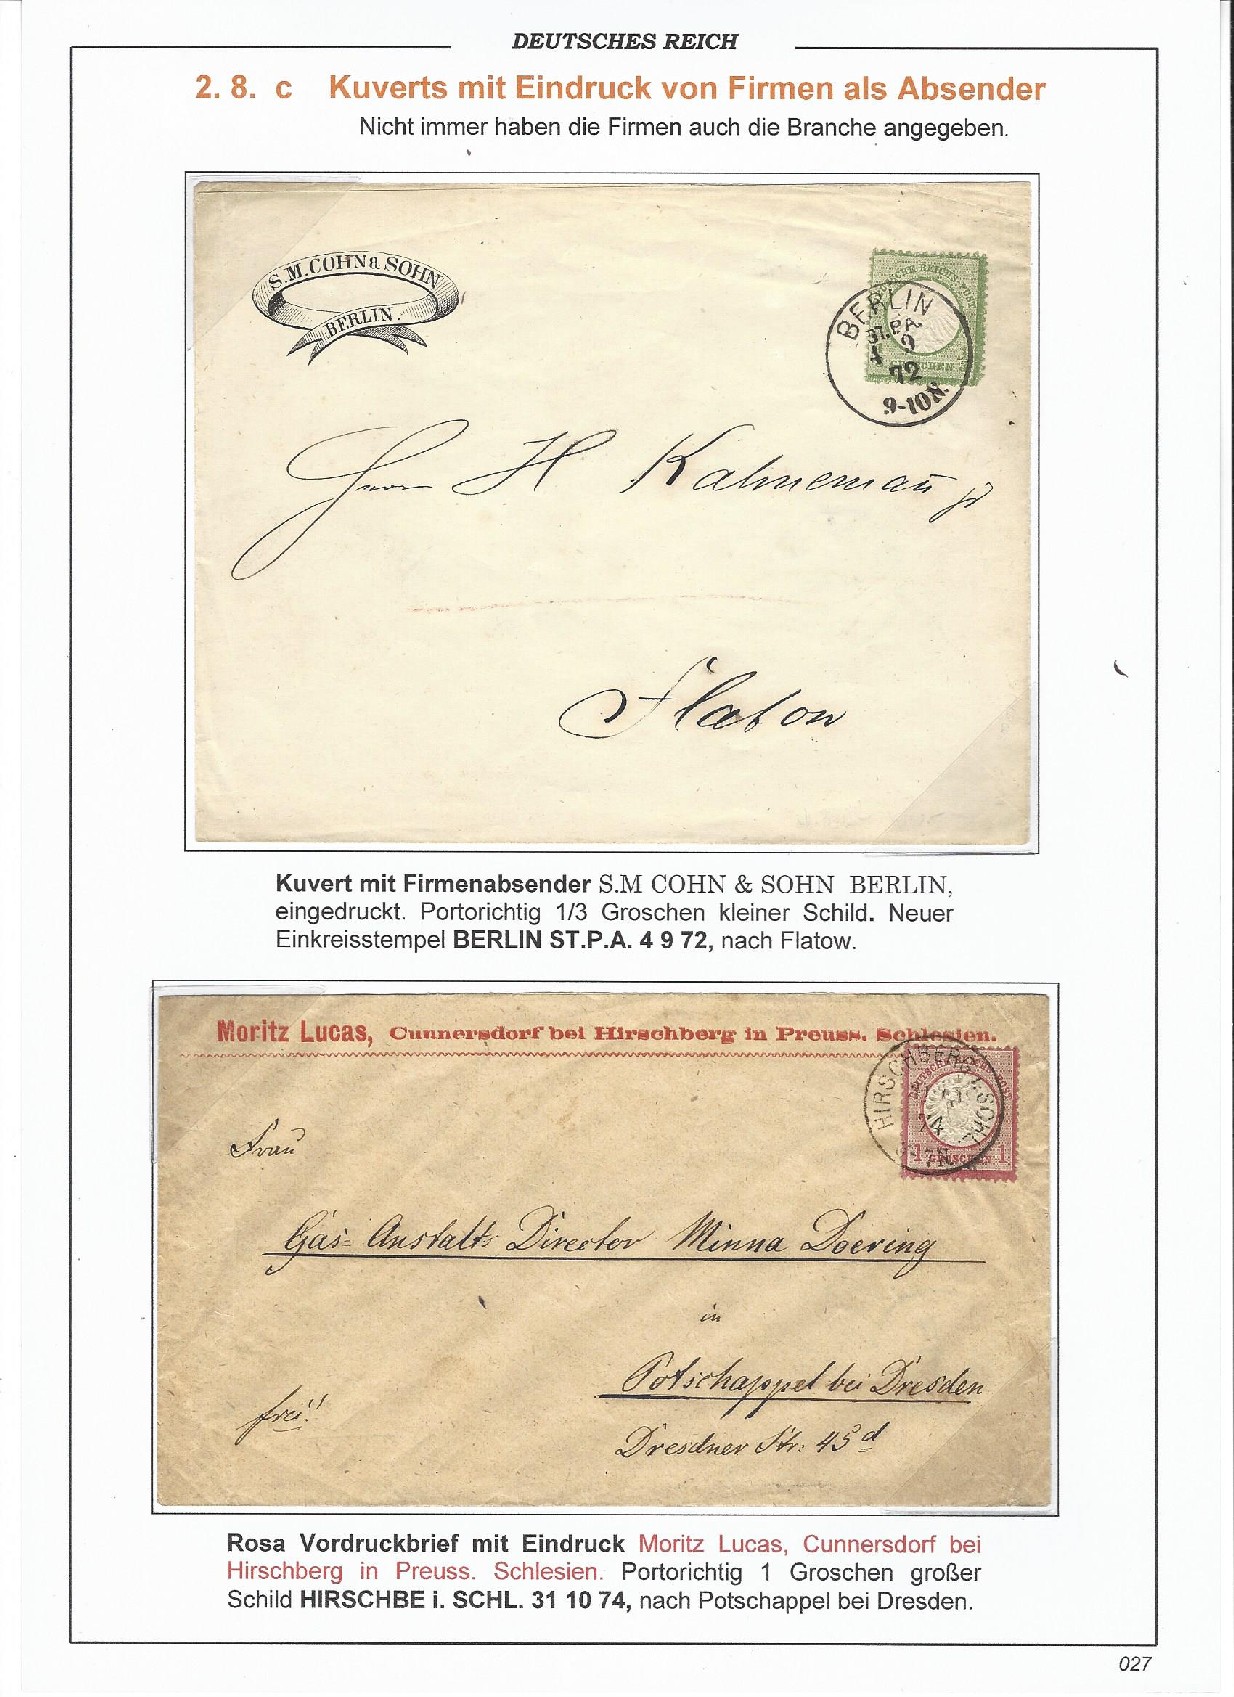 DEUTSCHES REICH
2. 8. c Kuverts mit Eindruck von Firmen als Absender
Nicht immer haben die Firmen auch die Branche angegeben.
S. M. COHN & SOHN
BERLIN.
BERLIN
ST.P.A.
4 9
72
9-10 N.
Herrn H Kahnemañ jr
Flatow
Kuvert mit Firmenabsender S.M COHN & SOHN BERLIN,
eingedruckt. Portorichtig 1/3 Groschen kleiner Schild. Neuer
Einkreisstempel BERLIN ST.P.A. 4 9 72, nach Flatow.
Moritz Lucas, Cunnersdorf bei Hirschberg in Preuss. Schlesien.
HIRSCHBERG i. SCHL.
74
1 GROSCHEN 1
Frau
Gas-Anstalts Director Minna Doering
in
Potschappel bei Dresden
frei!!
Dresdner Str: 45 d
Rosa Vordruckbrief mit Eindruck Moritz Lucas, Cunnersdorf bei
Hirschberg in Preuss. Schlesien. Portorichtig 1 Groschen großer
Schild HIRSCHBE i. SCHL. 31 10 74, nach Potschappel bei Dresden.
027